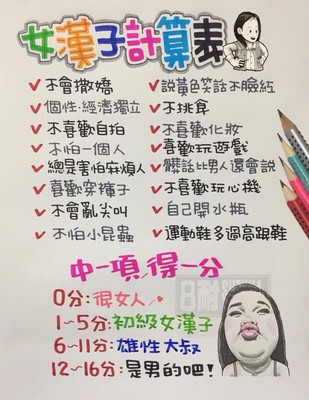 女漢子計算表
不會撒嬌
個性·經濟獨立
不喜歡自拍
不怕一個人
總是害怕麻煩人
喜歡穿褲子
不會亂尖叫
不怕小昆蟲
說黃色笑話不臉紅
不挑食
不喜歡化妝
喜歡玩遊戲
髒話比男人還會說
不喜歡玩心機
自己開水瓶
運動鞋多過高跟鞋
中一項得一分
0分:很女人
1~5分:初級女漢子
6~11分:雄性大叔
12~16分:是男的吧!